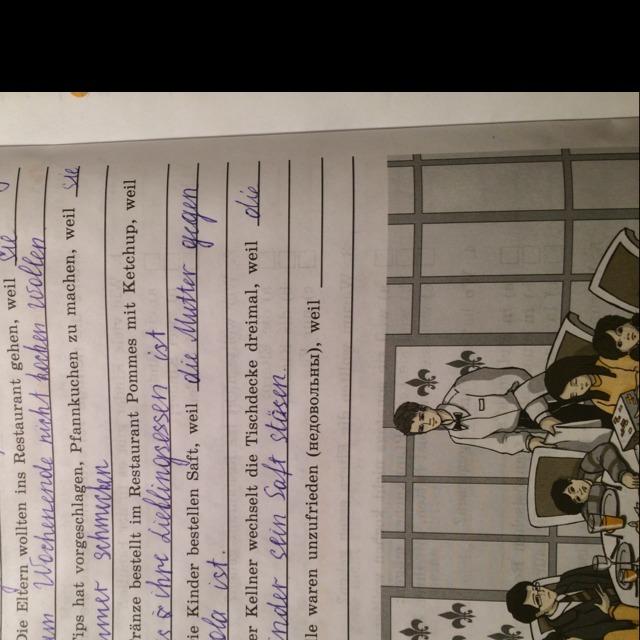 Die Eltern wollten ins Restaurant gehen, weil sie
Wochenende nicht kochen wollen
Tips hat vorgeschlagen, Pfannkuchen zu machen, weil sie
mmer schmecken
ränze bestellt im Restaurant Pommes mit Ketchup, weil
s ihre Lieblingsessen ist
ie Kinder bestellen Saft, weil die Mutter gegen
ola ist.
er Kellner wechselt die Tischdecke dreimal, weil die
inder sein Saft stösen.
lle waren unzufrieden (недовольны), weil